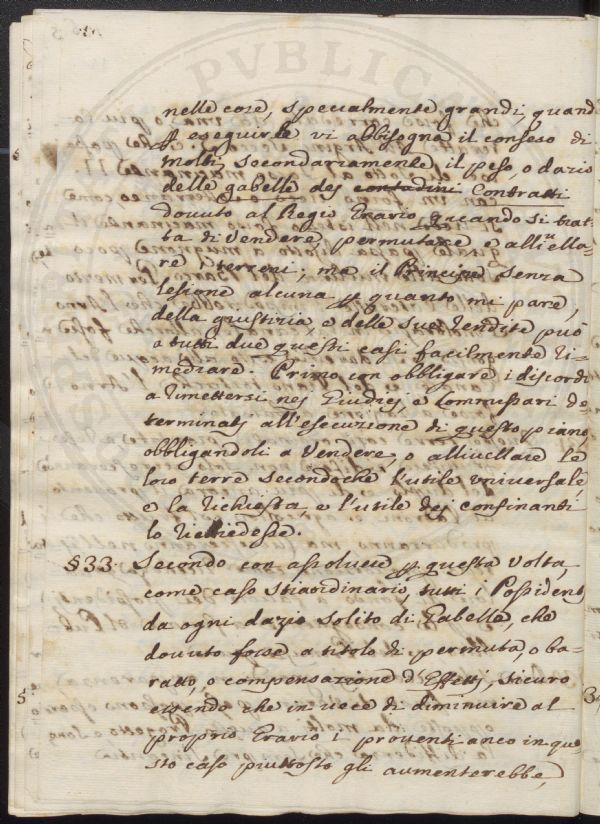 nelle cose, specialmente grandi, quand
p eseguirle vi abbisogna il consenso di
molti, secondariamente, il peso, o dazio
delle gabelle dej contadini Contratti
dovuto al Regio Erario, quando si trat-
ta di Vendere, permutare e allivella-
re i terreni; ma il Principe senza
lesione alcuna p quanto mi pare,
della giustizia, e delle sue Rendite può
a tutti due questi casi facilmente ri-
mediare. Primo con obbligare i discordi
a rimettersi nej Giudicj, e Commissari de
terminatj all'esecuzione di questo piano,
obbligandoli a Vendere, o allivellare le
loro terre secondochè l'utile universale,
e la richiesta, e l'utile dej confinanti
lo richiedesse.
§33 Secondo con assolvere p questa volta,
come caso straordinario, tutti i Possident
da ogni dazio solito di Gabelle, che
dovuto fosse a titolo di permuta, o ba-
ratto, o compensazione d'Effettj, sicuro
essendo che in vece di diminuire al
proprio Erario i proventi anco in que-
sto caso piuttosto gli aumenterebbe,